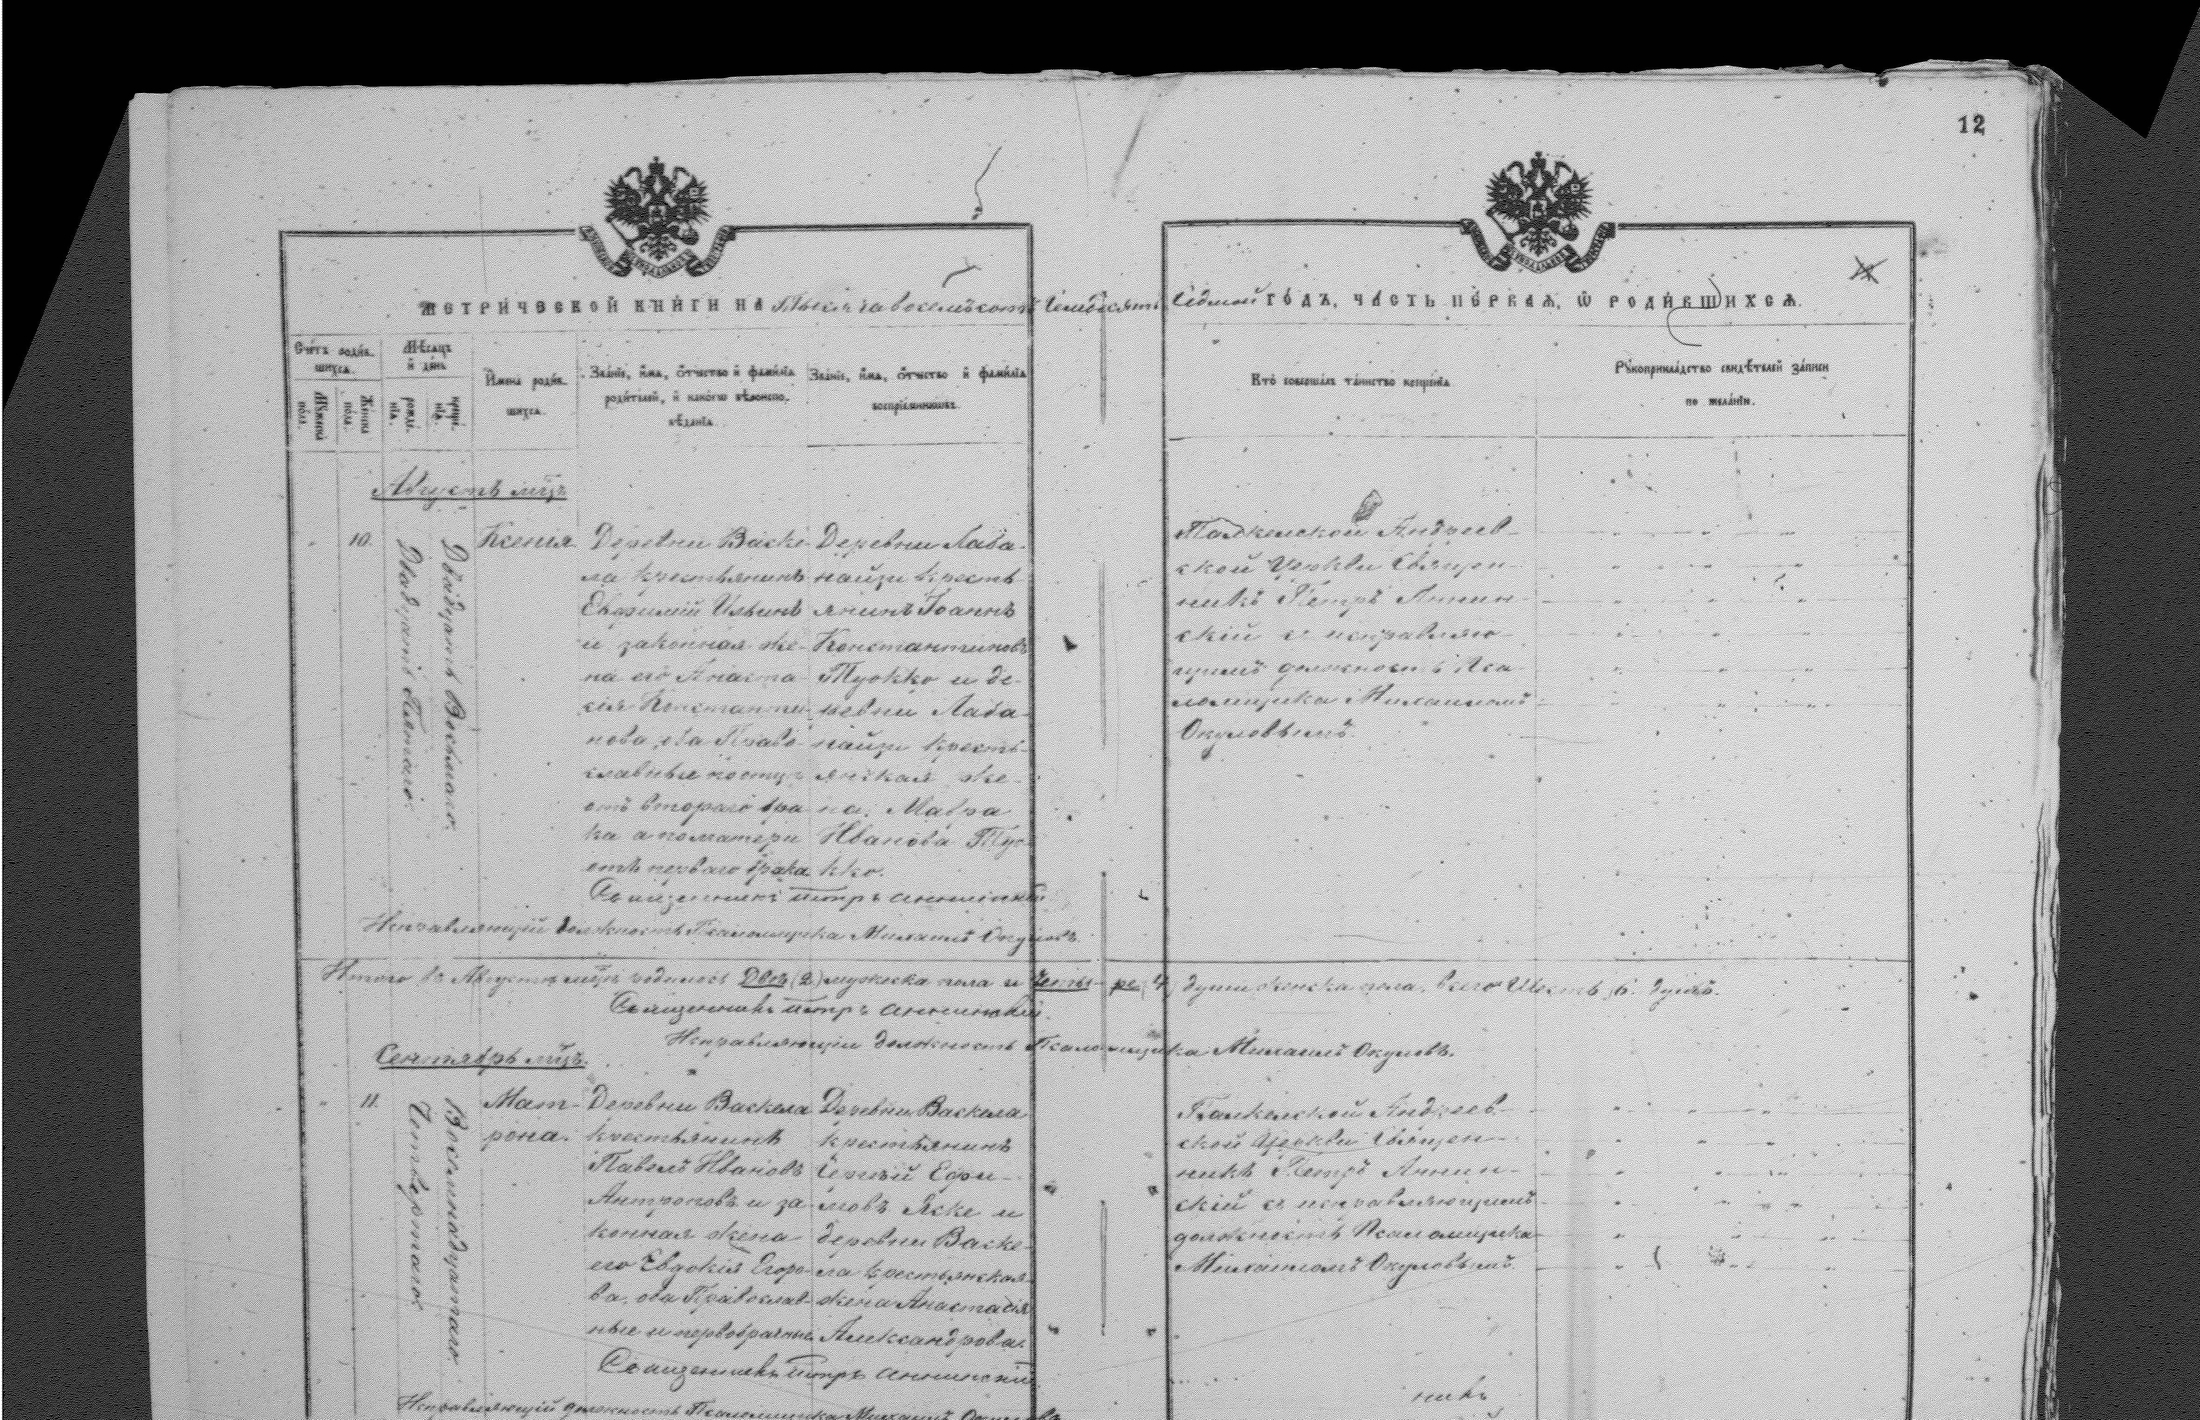 12
МЕТРИЧЕСКОЙ КНИГИ НА Тысяча восемьсотъ семьдесятъ седмой ГОДЪ, ЧАСТЬ ПЕРВАЯ, Ѿ РОДИВШИХСЯ.
Счетъ родив-
шихся.
Мужеска
пола.
Женска
пола.
Мѣсяцъ
и день
рожде-
нія.
креще-
нія.
Имена родив-
шихся.
Званіе, имя, отчество и фамилія
родителей, и какого вѣроиспо-
вѣданія.
Званіе, имя, отчество и фамилія
воспріемниковъ.
Кто совершалъ таинство крещенія
Рукоприкладство свидѣтелей записи
по желанію.
Августъ мцъ
10.
Двадцать Пятаго.
Двадцать Восьмаго.
Ксенія
Деревни Васке-
ла крестьянинъ
Евфимій Ильинъ
и законная же-
на его Анаста-
сія Константи-
нова, оба Право-
славные
отъ втораго бра-
ка а по матери
отъ перваго брака
Деревни Лава-
найзи кресть-
янинъ Іоаннъ
Константиновъ
Туокко и де-
ревни Лава-
найзи кресть-
янская же-
на, Мавра
Иванова Туо-
кко.
Священникъ Петръ Аннинскій
Исправляющій должность Псаломщика Михаилъ Окуловъ.
Андреев-
ской Церкви Священ-
никъ Петръ Аннин-
скій съ исправляю-
щимъ должность Пса-
ломщика Михаиломъ
Окуловымъ.
Итого въ Августѣ мцѣ родилось Двое (2) мужеска пола и Четы-ре (4) души женска пола, всего Шесть (6) душъ.
Священникъ Петръ Аннинскій.
Исправляющій должность Псаломщика Михаилъ Окуловъ.
Сентябрь мцъ.
11.
Четвертаго
Восемнадцатаго
Мат-
рона.
Деревни Васкела
крестьянинъ
Павелъ Ивановъ
Антроповъ и за-
конная жена
его Евдокія Егоро-
ва, оба Православ-
ные и первобрачные
Деревни Васкела
крестьянинъ
Сергій Ефи-
мовъ Яске и
деревни Васке-
ла крестьянская
жена Анастасія
Александрова.
Священникъ Петръ Аннинскій
Исправляющій должность Псаломщика Михаилъ Окуловъ
Андреев-
ской Церкви Священ-
никъ Петръ Аннин-
скій съ исправляющимъ
должность Псаломщика
Михаиломъ Окуловымъ.
никъ